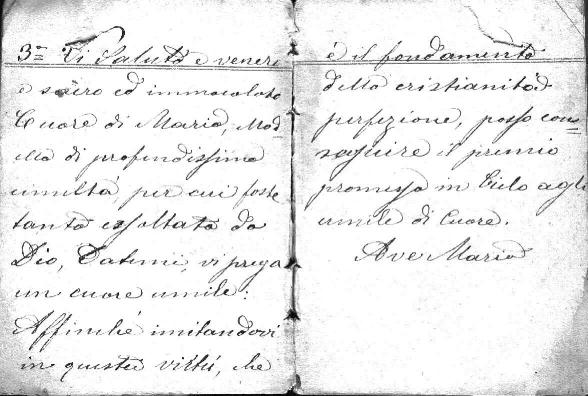 3ª Ti Saluto e veneri
e sacro ed immacolato
Cuore di Maria, Mod=
ello di profundissima
umiltá per cui foste
tanto essoltata da
Dio, Datemi, vi prega
un cuore umile:
Affinché imitandovi
in questa virtú, che
è il fondamento
della cristianitad
perfezione, posso con=
seguire il premio
promesso in Cielo agli
umile di Cuore.
Ave Maria